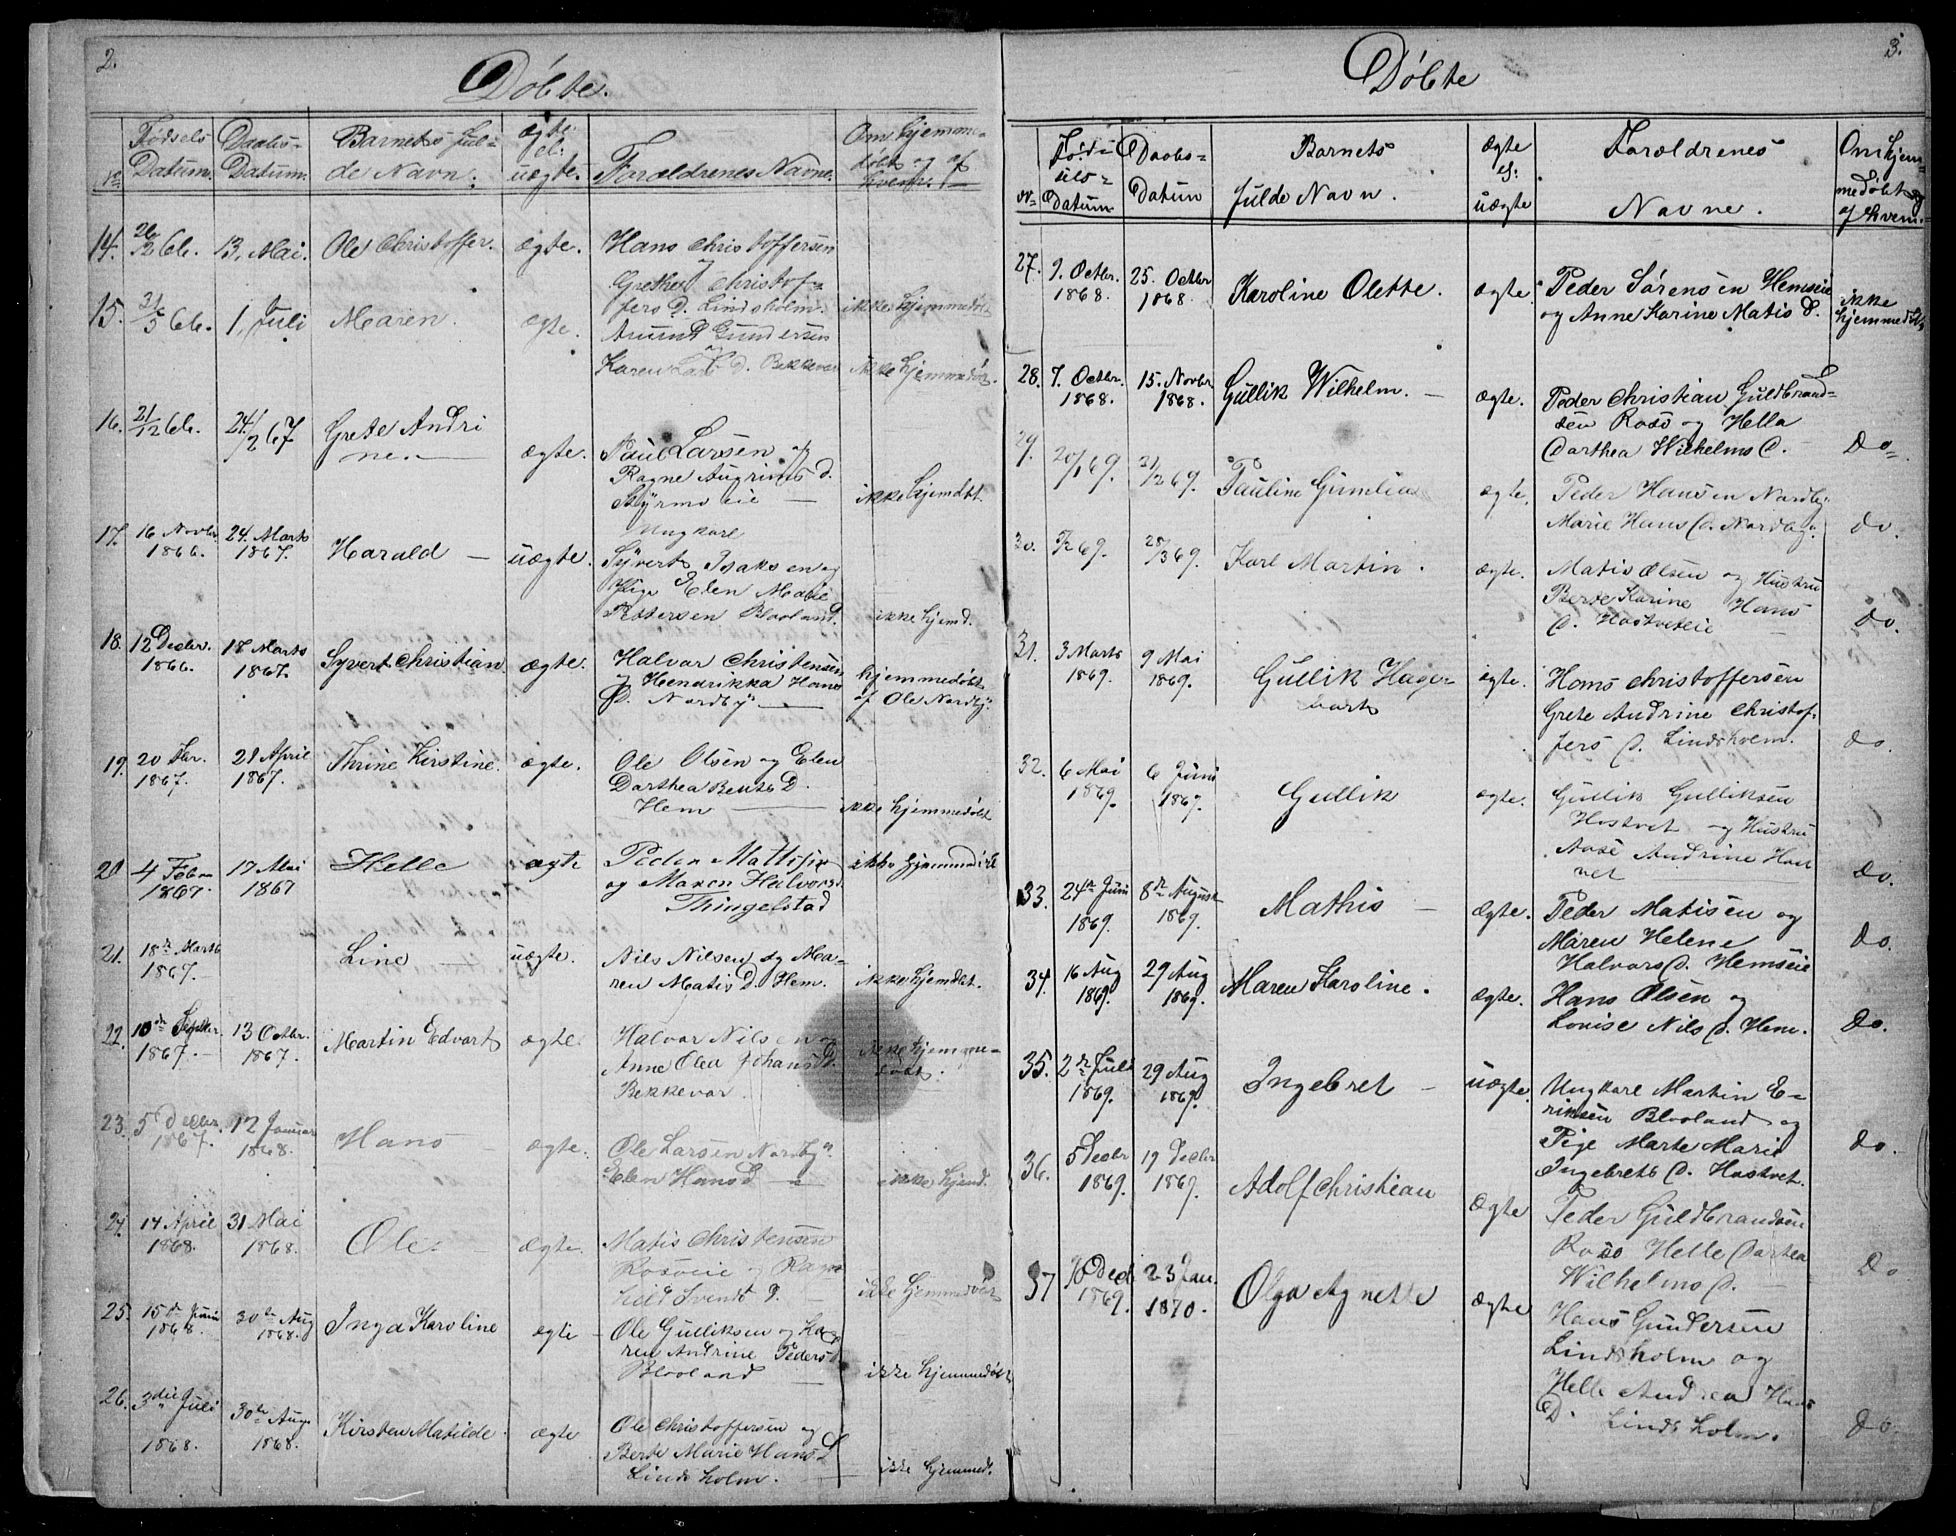 2.
Døbte.
No Fødsels Datum. Daabs-Datum. Barnets fulde Navn. ægte el. uægte. Forældrenes Navne. Om hjemmedøbt og af hvem.
14. 26/2 66. 13. Mai. Ole Christoffer. ægte. Hans Christoffersen
og
Grethe Christof-
fers D. Lindsholm. ikke hjemmedøbt
15. 31/5 66. 1. Juli Maren. ægte. Amund Gundersen
og
Karen Lars D. Bekkevar ikke hjemmedøbt.
16. 21/12 66. 24/2 67 Grete Andri
ne. ægte. Poul Larsen og
Ragne Augrims D.
Styrmoeie ikke hjemdbt.
17. 16 Novbr. 24. Marts Ungkarl
1866. 1867. Harald uægte. Syvert Isaksen og
Pige Elen Marie
Pettersen Blooland. ikke hjemd.
18. 12 Decbr. 18 Marts Halvar Christensen
1866. 1867. Syvert Christian. ægte. og Hendrikka Hans
D. Nordby hjemmedøbt
af Ole Nordby
19. 20 Febr. 21 April Ole Olsen og Elen
1867. 1867. Thrine Kirstine. ægte. Darthea Bents D.
Hem ikke hjemmedøbt
20 4 Febru 17 Mai Helle ægte Peder Mattisen ikke hjemmedøbt
1867. 1867 og Maren Halvorsd.
Thingelstad
21. 18de Marts Line uægte. Nils Nilsen og Ma-
1867. ren Matis D. Hem. ikke hjemdbt.
22. 10de Septbr. 13 Octbr. Martin Edvart ægte. Halvar Nilsen og
1867. 1867. Anne Olea Johans D.
Bekkevar. ikke hjemme-
døbt.
23. 5 Decbr. 12 Januar Hans ægte. Ole Larsen Nordby
1867. 1868. Elen Hans D. ikke hjemd.
24. 14 April 31 Mai Ole. ægte. Matis Christensen
1868. 1868. Rosøeie og Ragn-
hild Svends D. ikke hjemmedøbt
25. 15de Juni 30te Aug Inga Karoline ægte Ole Gulliksen og Ka-
1868. 1868. ren Andrine Peders D.
Blooland ikke hjemmedøbt
26. 3die Juli 30te Aug. Ole Christoffersen og
1868. 1868. Kirsten Matilde. ægte Berte Marie Hans D.
Lindsholm. ikke hjemmed.
3.
Døbte
No Fødsels-Datum. Daabs-Datum Barnets fulde Navn. ægte el. uægte Forældrenes Navne. Om hjemmedøbt og af hvem.
27. 9. Octbr. 25. Octbr Peder Sørensen Hemseie
1868. 1868. Karoline Olette. ægte. og Anne Karine Matis D. ikke
hjemmedøbt
28. 7. Octbr. 15. Novbr Gullik Wilhelm. ægte. Peder Christian Guldbrand-
1868. 1868. sen Rosø og Hella
Darthea Wilhelms D. Do.
29. 20/1 69. 21/2 69. Pauline Gunilia ægte. Peder Hansen Nordby
Marie Hans D. Nordby. do.
30. 7/2 69. 28/3 69. Karl Martin. ægte. Matis Olsen og Hustru
Berte Karine Hans
D. Hostveteie do.
31. 3 Marts 9 Mai Gullik Hage- ægte. Hans Christoffersen
1869. 1869. barth Grete Andrine Christof-
fers D. Lindsholm. do.
32. 6 Mai 6 Juni Gullik ægte. Gullik Gulliksen
1869. 1869. Hostvet og Hustru
Aase Andrine Host
vet do.
33. 24de Juni 8de August Mathis ægte. Peder Matisen og
1869. 1869. Maren Helene
Halvors D. Hemseie do.
34. 16 Aug 29 Aug Maren Karoline. ægte. Hans Olsen og
1869. 1869. Lovise Nils D. Hem. do.
35. 2de Juli 29 Aug Ingebret uægte. Ungkarl Martin E-
1869. 1869. riksen Blooland og
Pige Marte Marie
Ingebrets D. Hostvet. do.
36. 5 Decbr 19 Decbr Adolf Christian ægte Peder Guldbrandsen
1869. 1869. Rosø Helle Darthea
Wilhelms D. Do
37 10 Dec 23 Jan. Olga Agnette ægte Hans Gundersen
1869. 1870. Lindsholm og
Helle Andrea Hans
D. Lindsholm. do.